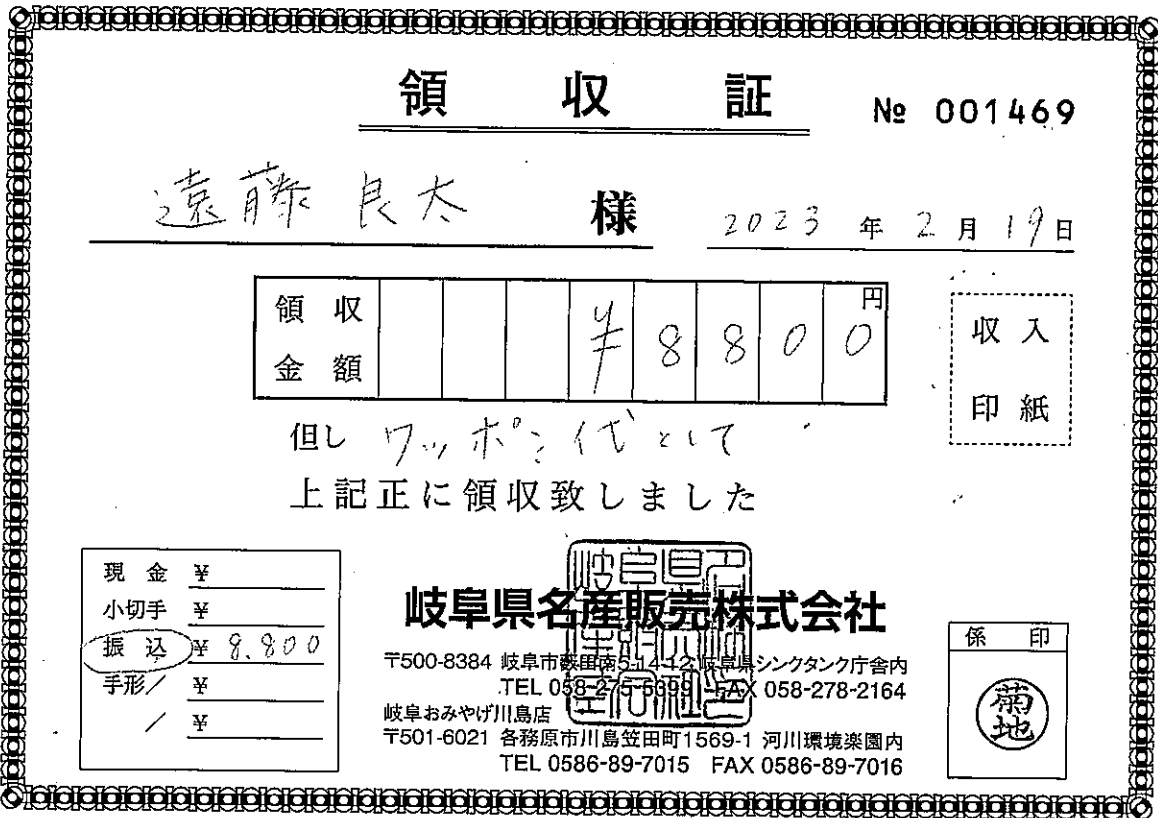 領収証
№ 001469
遠藤 良太 様
2023 年 2 月 19 日
領収金額 ¥8800 円
収入印紙
但し ワッポン代として
上記正に領収致しました
現金 ¥
小切手 ¥
振込 ¥ 8.800
手形/ ¥
/ ¥
岐阜県名産販売株式会社
〒500-8384 岐阜市薮田南5-14-12 岐阜県シンクタンク庁舎内
TEL 058-275-5399 FAX 058-278-2164
岐阜おみやげ川島店
〒501-6021 各務原市川島笠田町1569-1 河川環境楽園内
TEL 0586-89-7015 FAX 0586-89-7016
係印
菊地